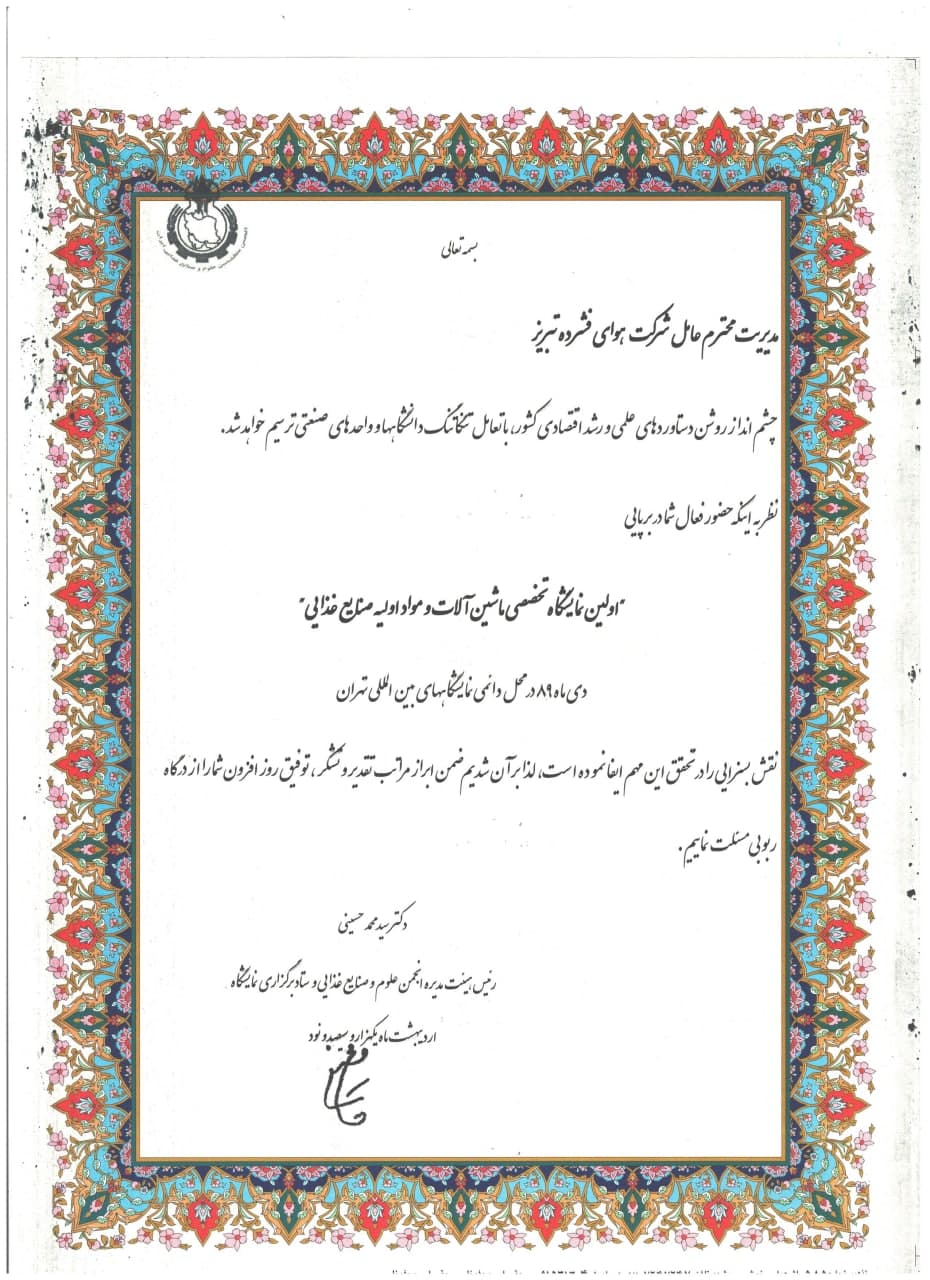 بسمه تعالی
مدیریت محترم عامل شرکت هوای فشرده تبریز
چشم انداز روشن دستاوردهای علمی و رشد اقتصادی کشور، با تعامل تنگاتنگ دانشگاهها و واحدهای صنعتی ترسیم خواهد شد.
نظر به اینکه حضور فعال شما در برپایی
"اولین نمایشگاه تخصصی ماشین آلات و مواد اولیه صنایع غذایی"
دی ماه ۸۹ در محل دائمی نمایشگاههای بین المللی تهران
نقش بسزایی را در تحقق این مهم ایفا نموده است، لذا بر آن شدیم ضمن ابراز مراتب تقدیر و تشکر، توفیق روز افزون شما را از درگاه
ربوبی مسئلت نماییم.
دکتر سید محمد حسینی
رئیس هیئت مدیره انجمن علوم و صنایع غذایی و ستاد برگزاری نمایشگاه
اردیبهشت ماه یکهزار و سیصد و نود